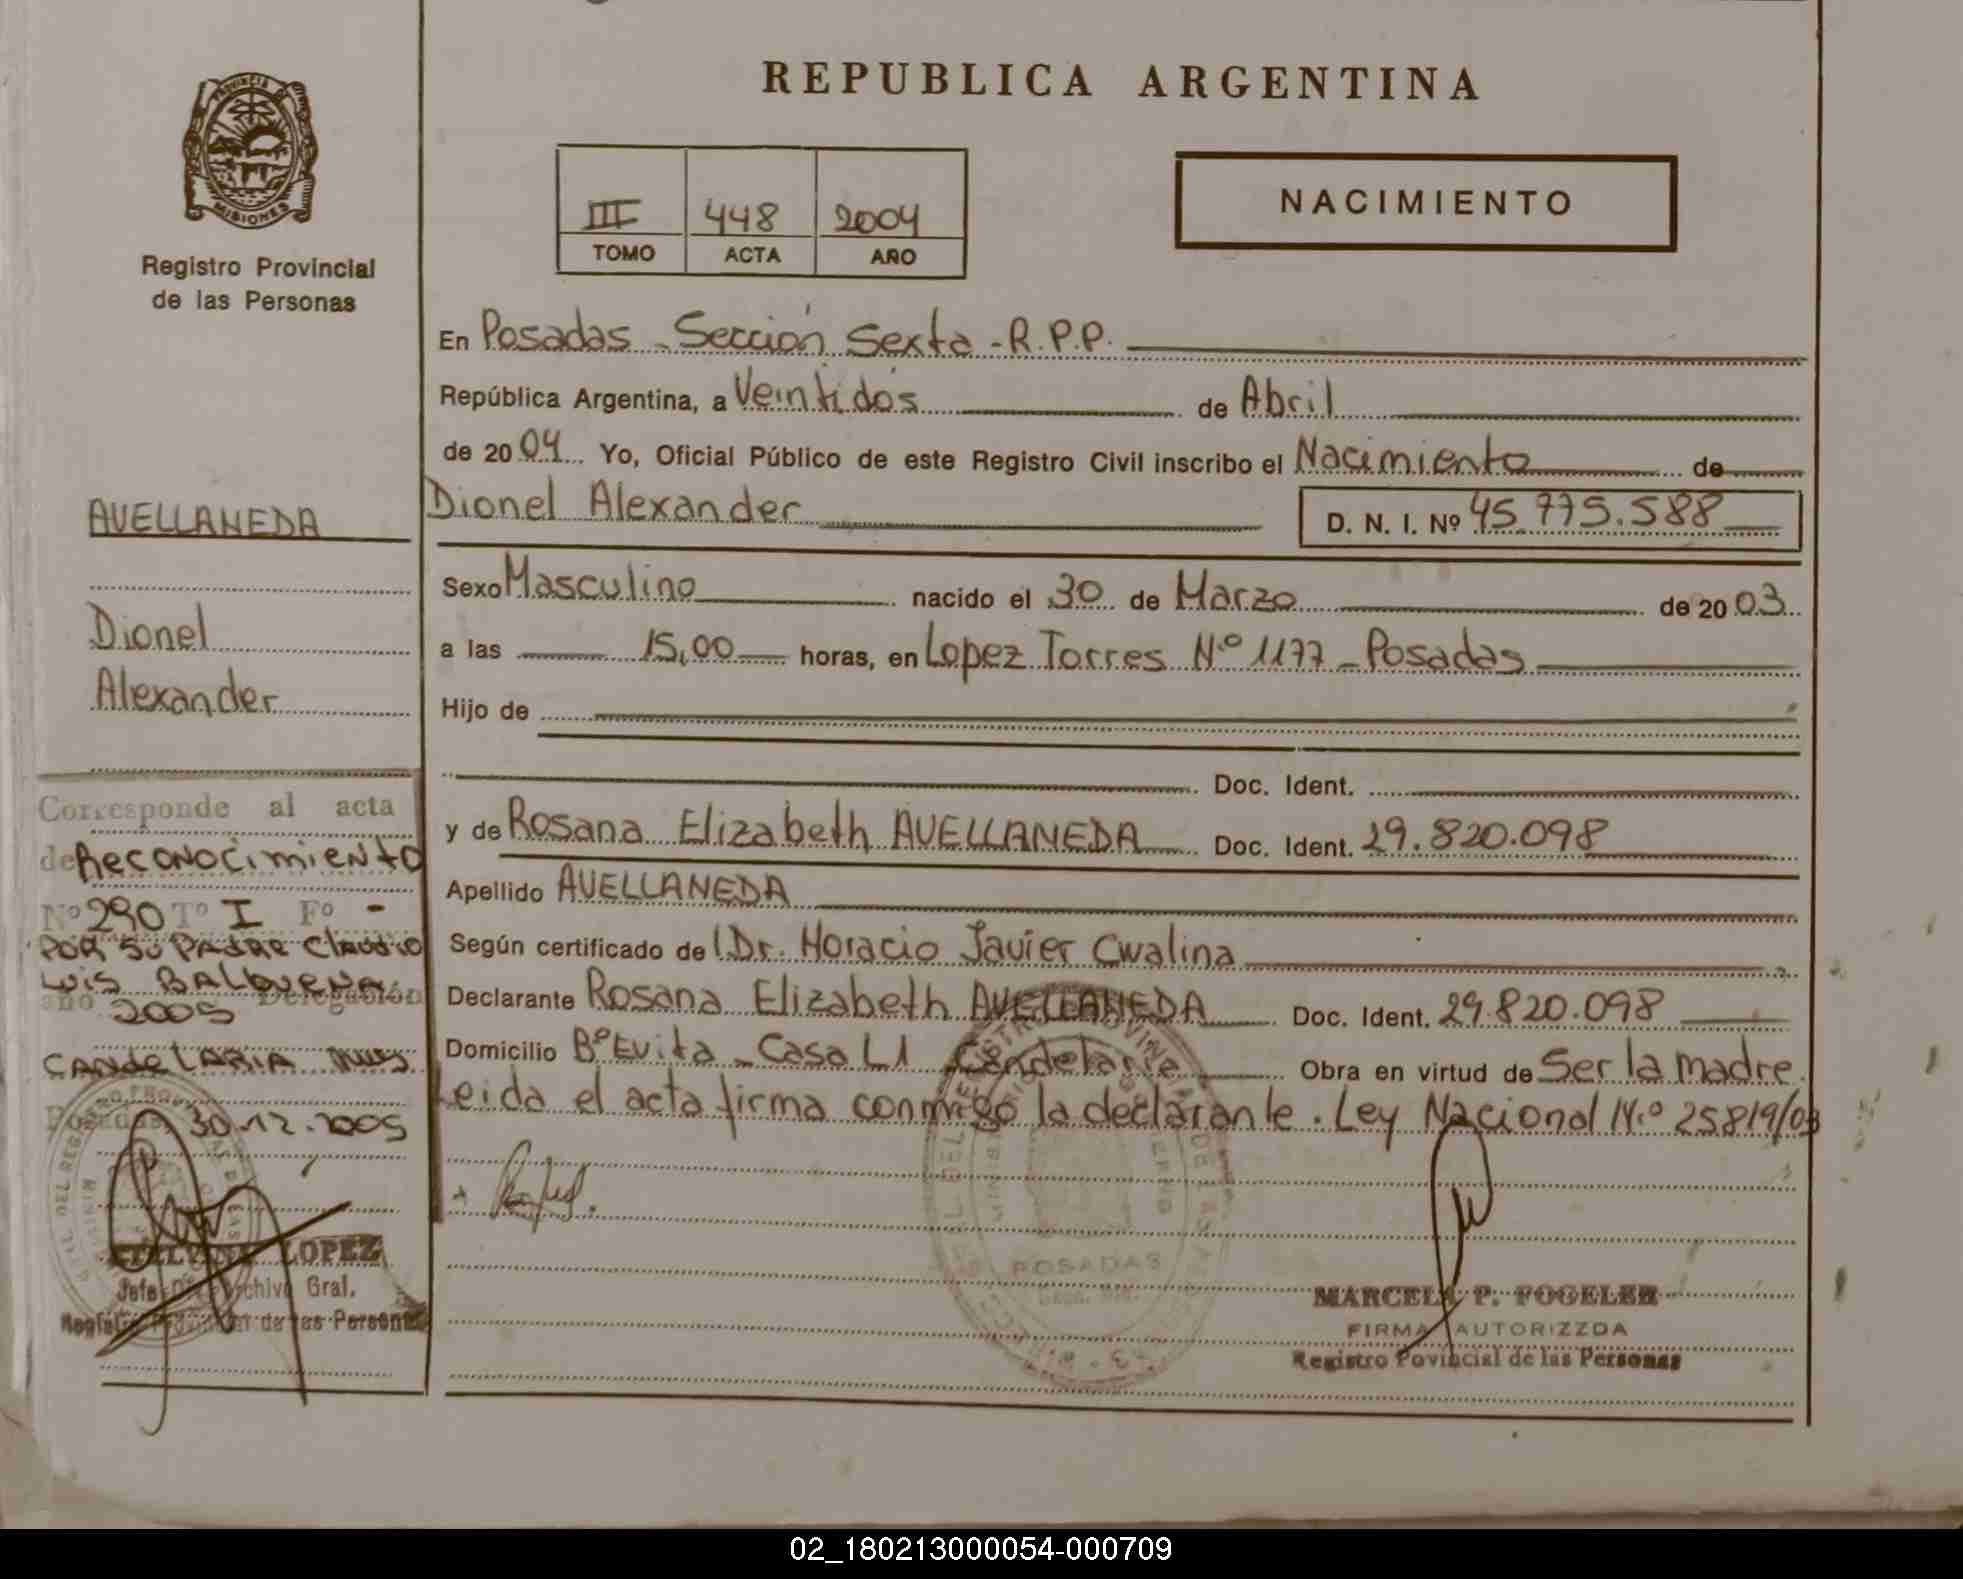 REPUBLICA ARGENTINA
PROVINCIA DE
MISIONES
Registro Provincial
de las Personas
III 448 2004
TOMO ACTA AÑO
NACIMIENTO
En Posadas - Sección Sexta - R.P.P.
República Argentina, a Veintidós de Abril
de 2004 Yo, Oficial Público de este Registro Civil inscribo el Nacimiento de
Dionel Alexander D. N. I. Nº 45.775.588
Sexo Masculino nacido el 30 de Marzo de 2003
a las 15,00 horas, en Lopez Torres N.º 1177 - Posadas
Hijo de
Doc. Ident.
y de Rosana Elizabeth AVELLANEDA Doc. Ident. 29.820.098
Apellido AVELLANEDA
Según certificado de l Dr. Horacio Javier Cwalina
Declarante Rosana Elizabeth AVELLANEDA Doc. Ident. 29.820.098
Domicilio Bº Evita - Casa L1 Candelaria Obra en virtud de Ser la madre.
Leida el acta firma conmigo la declarante. Ley Nacional N.º 25819/03
POSADAS
MARCELA P. FOGELER
FIRMA AUTORIZZDA
Registro Povincial de las Personas
AVELLANEDA
Dionel
Alexander
Corresponde al acta
de Reconocimiento
Nº 290 Tº I Fº -
POR SU PADRE Claudio
Luis BALBUENA
año 2005 Delegación
CANDELARIA Mnes
Posadas, 30.12.2005
LOPEZ
Jefe Dº Archivo Gral.
Registro Provincial de las Personas
02_180213000054-000709